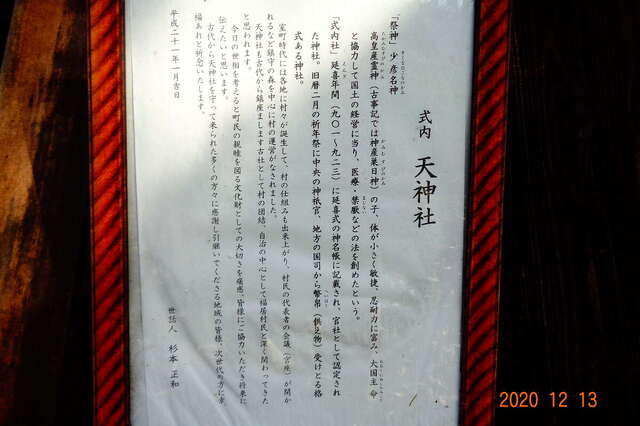 式内 天神社
「祭神」少彦名神
高皇産霊神（古事記では神産巣日神）の子、体が小さく敏捷、忍耐力に富み、大国主命
と協力して国土の経営に当り、医療・禁厭などの法を創めたという。
「式内社」延喜年間（九〇一〜九二三）に延喜式の神名帳に記載され、官社として認定され
た神社。旧暦二月の祈年祭に中央の神祇官、地方の国司から幣帛（供え物）受けとる格
式ある神社。
室町時代には各地に村々が誕生して、村の仕組みも出来上がり、村民の代表者の会議（宮座）が開か
れるなど鎮守の森を中心に村の運営がなされました。
天神社も古代から鎮座まします古社として村の団結、自治の中心として福居村民と深く関わってきた
と思われます。
今日の世相を考えると町民の親睦を図る文化財としての大切さを痛感、皆様にご協力いただき将来に
伝えたいと思います。
古代から天神社を守って来られた多くの方々に感謝し引継いでくださる地域の皆様、次世代の方に幸
福あれと祈念いたします。
平成二十一年一月吉日
世話人 杉本正和
2020 12 13